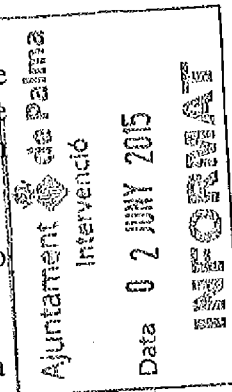 Ajuntament de Palma
Intervenció
Data 02 JUNY 2015
INFORMAT